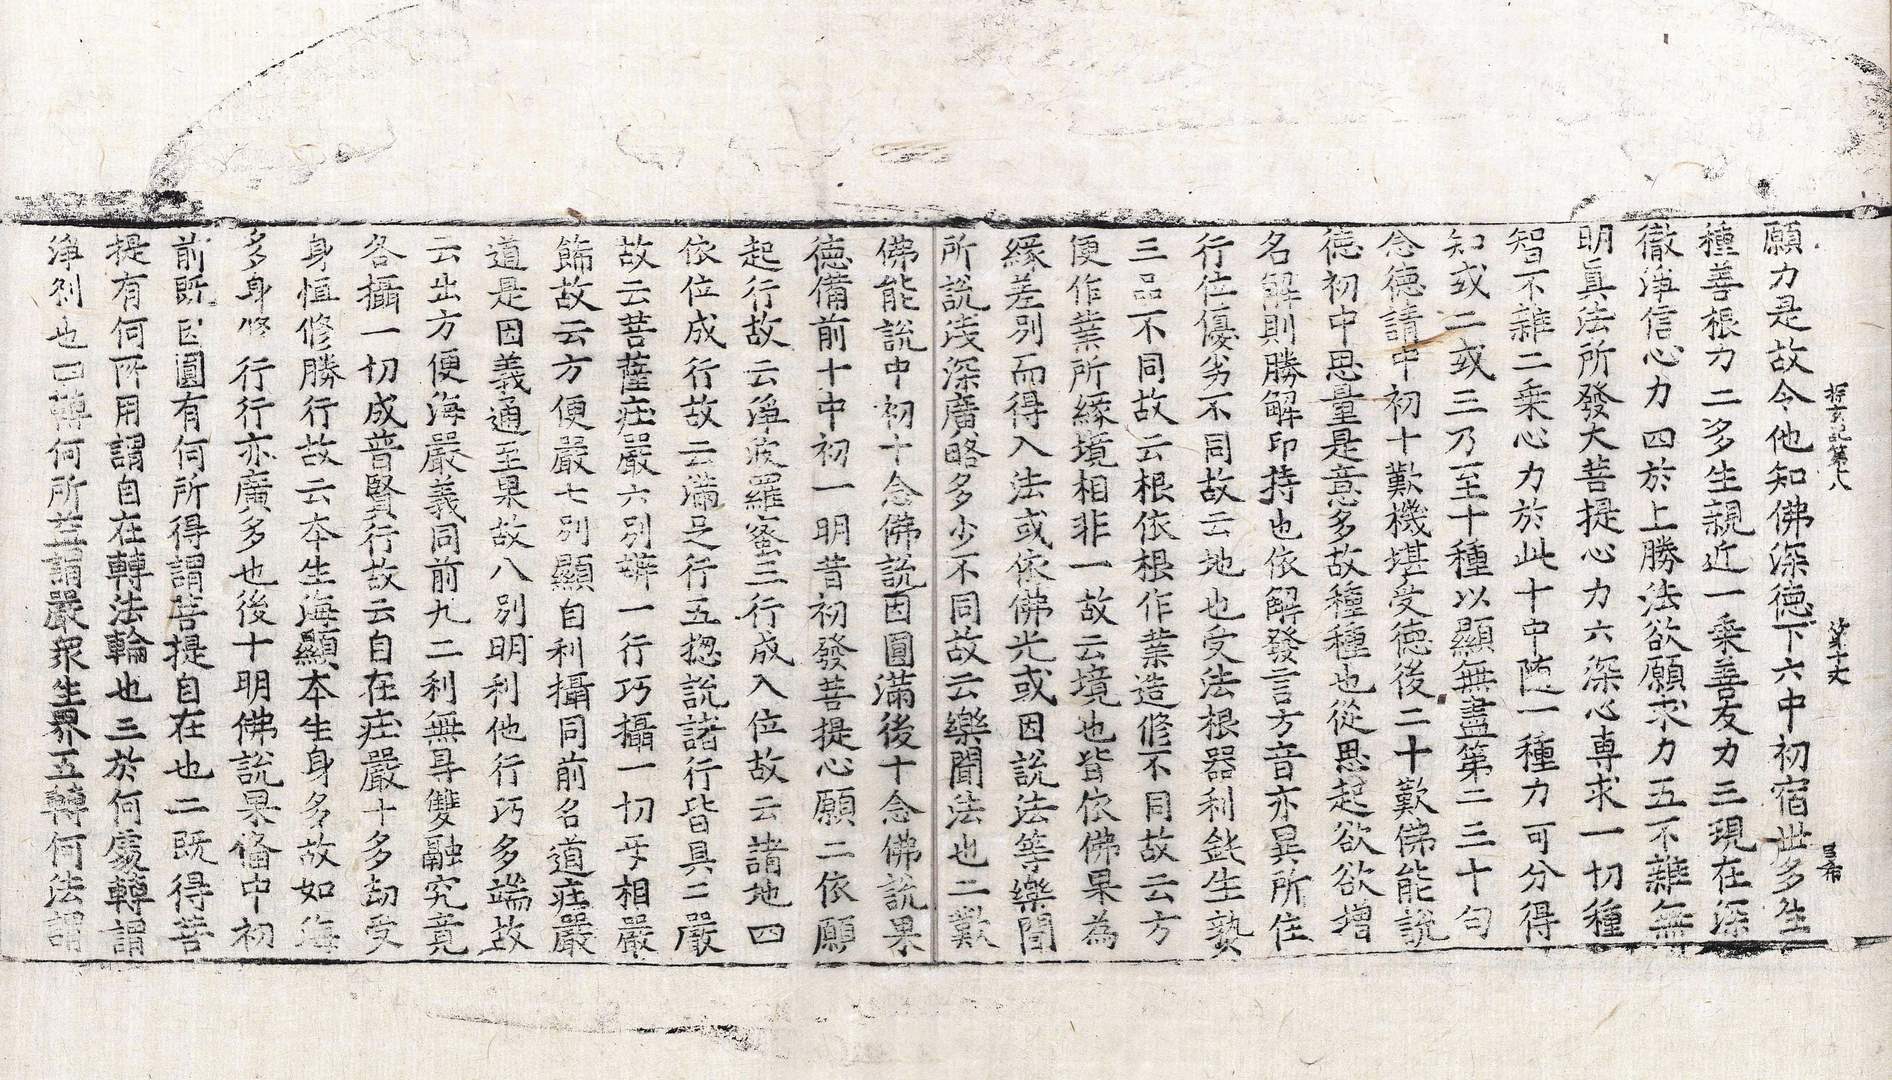 探玄記第十八　第十丈　呂希
願力是故令他知佛深德下六中初宿世多生
種善根力二多生親近一乘善友力三現在深
徹淨信心力四於上勝法欲願求力五不雜無
明眞法所發大菩提心力六深心専求一切種
智不雜二乘心力於此十中随一種力可分得
知或二或三乃至十種以顯無盡第二三十句
念德請中初十歎機堪受德後二十歎佛能說
德初中思量是意多故種種也從思起欲欲增
名解則勝解印持也依解發言方音亦異所住
行位優劣不同故云地也受法根器利鈍生熟
三品不同故云根依根作業造修不同故云方
便作業所緣境相非一故云境也皆依佛果為
緣差別而得入法或依佛光或因說法等樂聞
所說浅深廣略多少不同故云樂聞法也二歎
佛能說中初十念佛說因圓滿後十念佛說果
德備前十中初一明昔初發菩提心願二依願
起行故云淨波羅蜜三行成入位故云諸地四
依位成行故云滿足行五揔說諸行皆具二嚴
故云菩薩庄嚴六別辨一行巧攝一切乎相嚴
餝故云方便嚴七別顯自利攝同前名道庄嚴
道是因義通至果故八別明利他行巧多端故
云出方便海嚴義同前九二利無㝵雙融究竟
各攝一切成普賢行故云自在庄嚴十多劫受
身恒修勝行故云本生海顯本生身多故如海
多身修行行亦廣多也後十明佛說果俻中初
前旣因圓有何所得謂菩提自在也二旣得菩
提有何所用謂自在轉法輪也三於何處轉謂
淨刹也四轉何所益謂嚴衆生界五轉何法謂